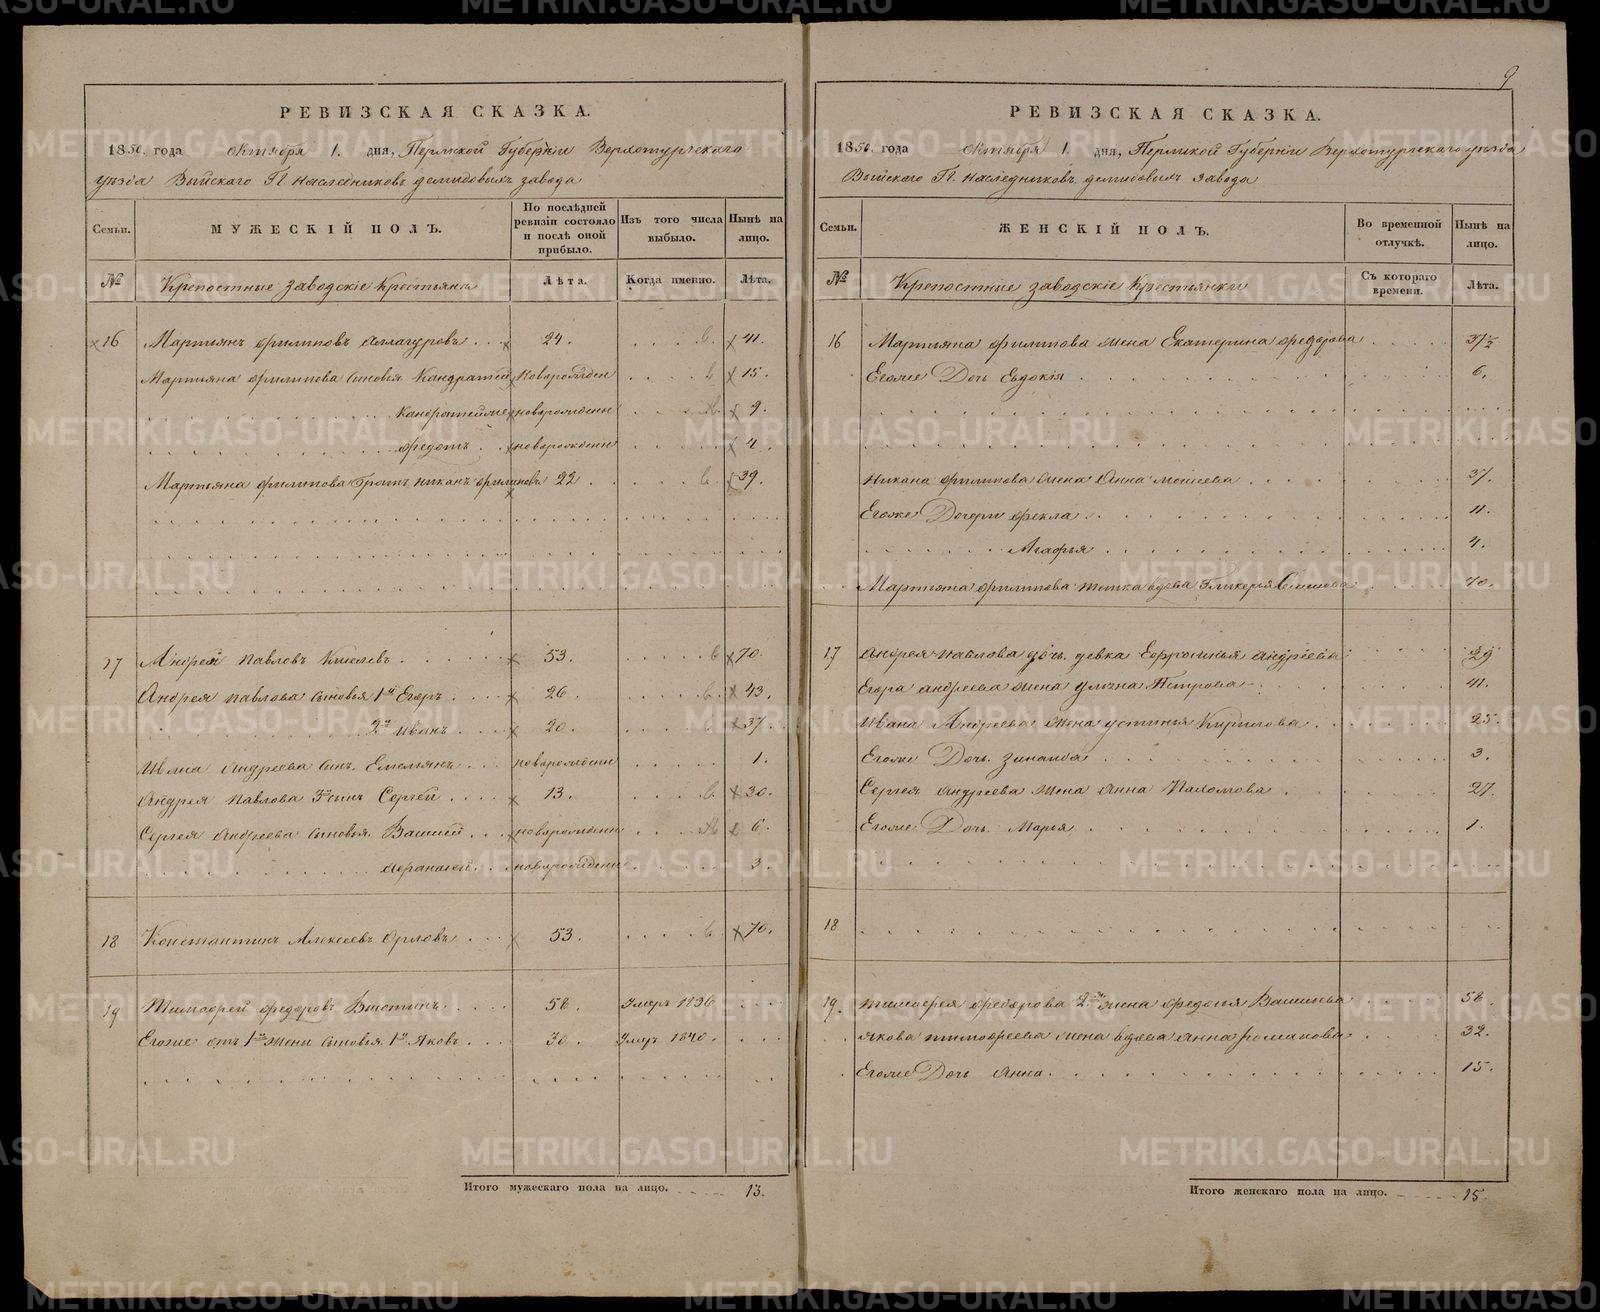 9
РЕВИЗСКАЯ СКАЗКА.
1850. года Октября 1. дня, Пермской Губернии Верхотурскаго
уезда Выйскаго П. наследниковъ демидовыхъ завода
Семьи.
МУЖЕСКІЙ ПОЛЪ.
По послѣдней ревизіи состояло и послѣ оной прибыло.
Изъ того числа выбыло.
Нынѣ на лицо.
№
Крепостные заводскіе Крестьяне
Лѣта.
Когда именно.
Лѣта.
16 Мартьянъ Филиповъ 24. 41.
Мартьяна Филипова сыновья Кандратей новорожден 15.
Кандратей же новорожденн 9.
Федотъ новорожденн 4.
Мартьяна Филипова братъ никанъ Филиповъ 22 39.
17 Андрей Павловъ Киселевъ 53. 70.
Андрея Павлова сыновья 1й Егоръ 26. 43.
2й Иванъ 20. 37.
Ивана Андреева сынъ Емельянъ новорожденн 1.
Андрея Павлова 3й сынъ Сергей 13. 30.
Сергея Андреева сыновья Василей новорожденн 6.
Афанасей новорожденн 3.
18 Константинъ Алексеевъ Орловъ 53. 70.
19 Тимофей Федоровъ 58. Умеръ 1836
Егоже отъ 1й жены сыновья 1й Яковъ 30. Умеръ 1840.
Итого мужескаго пола на лицо. 13.
РЕВИЗСКАЯ СКАЗКА.
1850. года Октября 1. дня, Пермской Губернии Верхотурскаго уезда
Выйскаго П. наследниковъ демидовыхъ завода
Семьи.
ЖЕНСКІЙ ПОЛЪ.
Во временной отлучкѣ.
Нынѣ на лицо.
№
Крепостные заводские Крестьянки
Съ котораго времени.
Лѣта.
16 Мартьяна Филипова жена Екатерина Федорова 37½
Егоже Дочь Евдокія 6.
Никана Филипова жена Анна Моисеева 37.
Егоже Дочери Фекла 11.
Агафья 4.
Мартьяна Филипова тетка вдова Гликерья Семенова 70.
17 Андрея Павлова дочь девка Ефросинья Андреева 29
Егора Андреева жена Ульяна Петрова 41.
Ивана Андреева жена Устинья Кирилова 25.
Егоже Дочь Зинаида 3.
Сергея Андреева жена Анна Пахомова 27.
Егоже Дочь Марья 1.
18
19. Тимофея Федорова 2я жена Федосья Васильева 58.
Якова Тимофеева жена вдова Анна Романова 32.
Егоже Дочь Анна 15.
Итого женскаго пола на лицо. 15.
METRIKI.GASO-URAL.RU